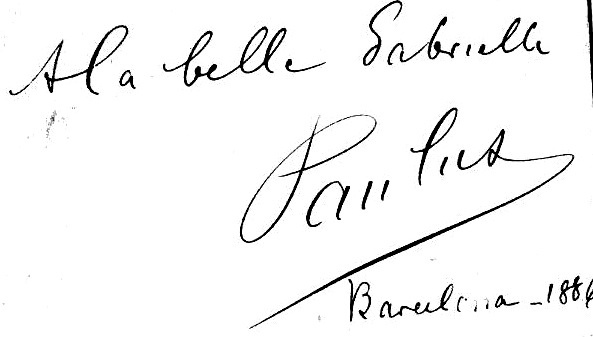 A la belle Gabrielle
Paulus
Barcelona - 1886